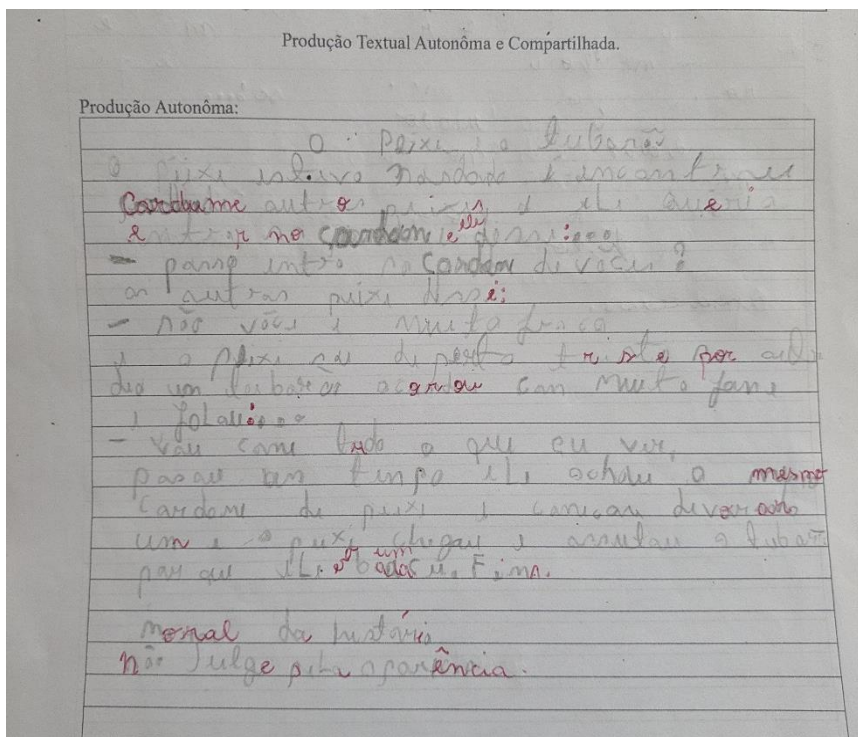 Produção Textual Autonôma e Compartilhada.
Produção Autonôma:
O Peixe e o tubarão
O peixe estava nadado e encontrou
Cardume outros peixes e ele queria
entrar no cardume ele disse:
- posso entra no cardume de vocês?
os outros peixe disse:
- não você é muito fraco
e o peixe saí de perto triste por
deo um tubarão acordou con muito fome
e falou:
- vou come tudo o que eu ver,
pasou um tenpo ele achou o mesmo
cardome de peixe e começou devorar
um e o peixe chegou e asustou o tubarão
por que ele era um. Fim.
moral da história
não Julge pela aparência.